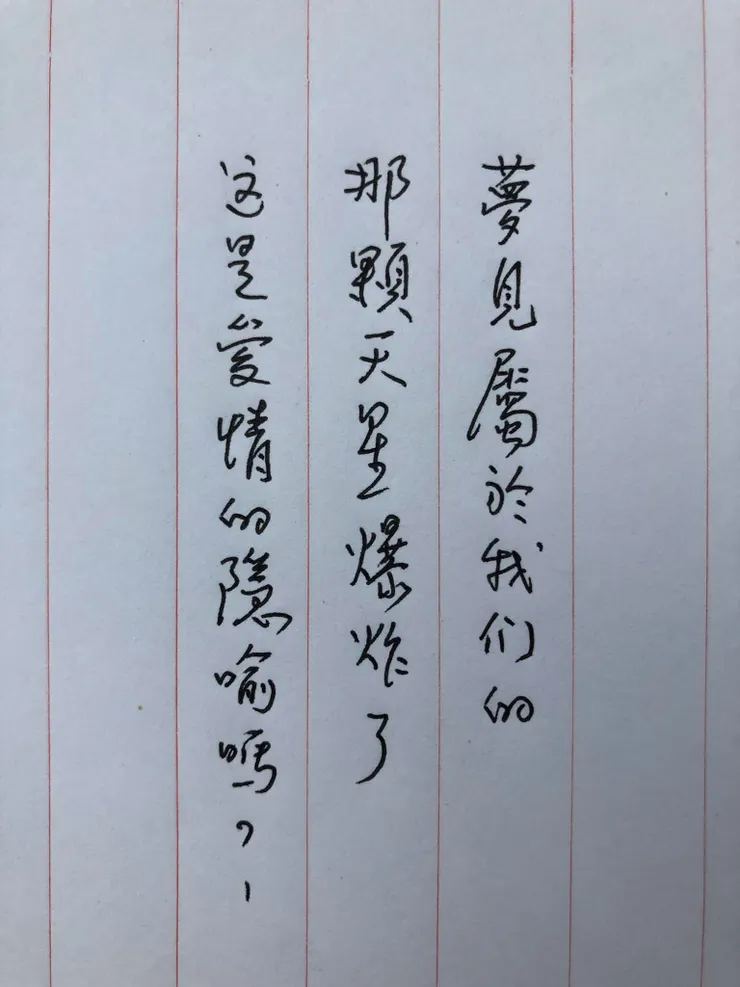 夢見屬於我们的
那顆天星爆炸了
这是愛情的隱喻嗎？